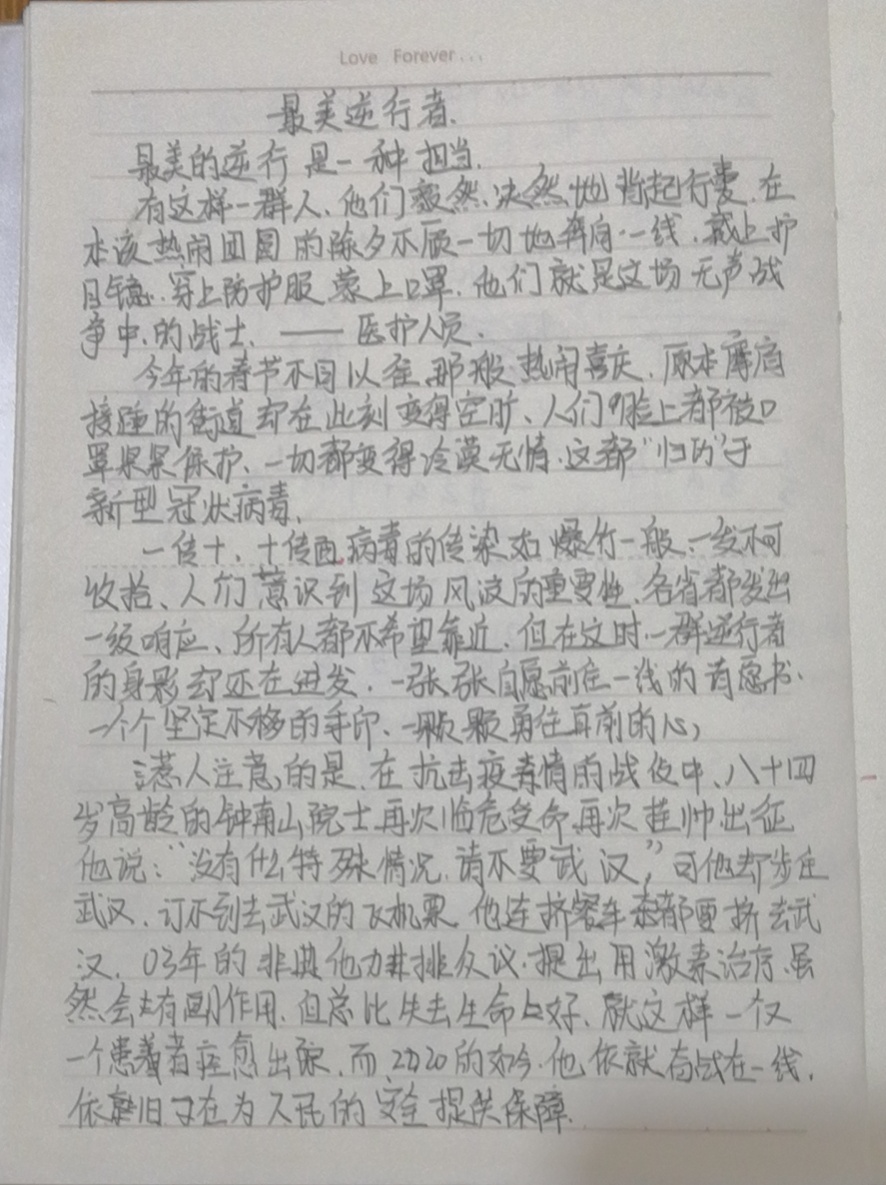 Love Forever...
最美逆行者.
最美的逆行是一种担当.
有这样一群人,他们毅然决然地背起行囊,在
本该热闹团圆的除夕不顾一切地奔向一线,戴上护
目镜,穿上防护服蒙上口罩,他们就是这场无声战
争中的战士,——医护人员.
今年的春节不同以往那般热闹喜庆,原本摩肩
接踵的街道却在此刻变得空旷、人们的脸上都被口
罩保护、一切都变得冷漠无情.这都“归功”于
新型冠状病毒.
一传十、十传百,病毒的传染如爆竹一般、一发不可
收拾、人们意识到这场风波的重要性,各省都发出
一级响应、所有人都不希望靠近,但在这时,一群逆行者
的身影却还在进发.一张张自愿前往一线的请愿书、
一个个坚定不移的手印、一颗颗勇往直前的心,
惹人注意的是,在抗击疫情的战役中、八十四
岁高龄的钟南山院士再次临危受命,再次挂帅出征
他说:“没有什么特殊情况,请不要武汉”,可他却步
武汉.订不到去武汉的飞机票他连挤客车都要挤去武
汉.03年的非典他力排众议.提出用激素治疗.虽
然会有副作用.但总比失去生命好、就这样一
一个患者痊愈出院.而2020的如今.他依就奋战在一线,
依旧在为人民的安全提供保障.